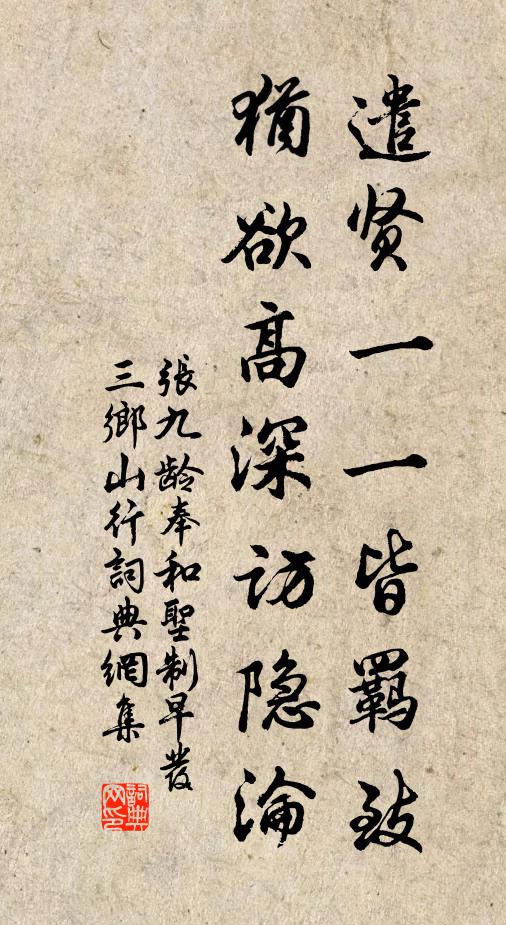 遣贤一一皆羁致
猶欲高深访隐淪
張九龄奉和聖制早發
三鄉山行詞典網集
詞典
网印